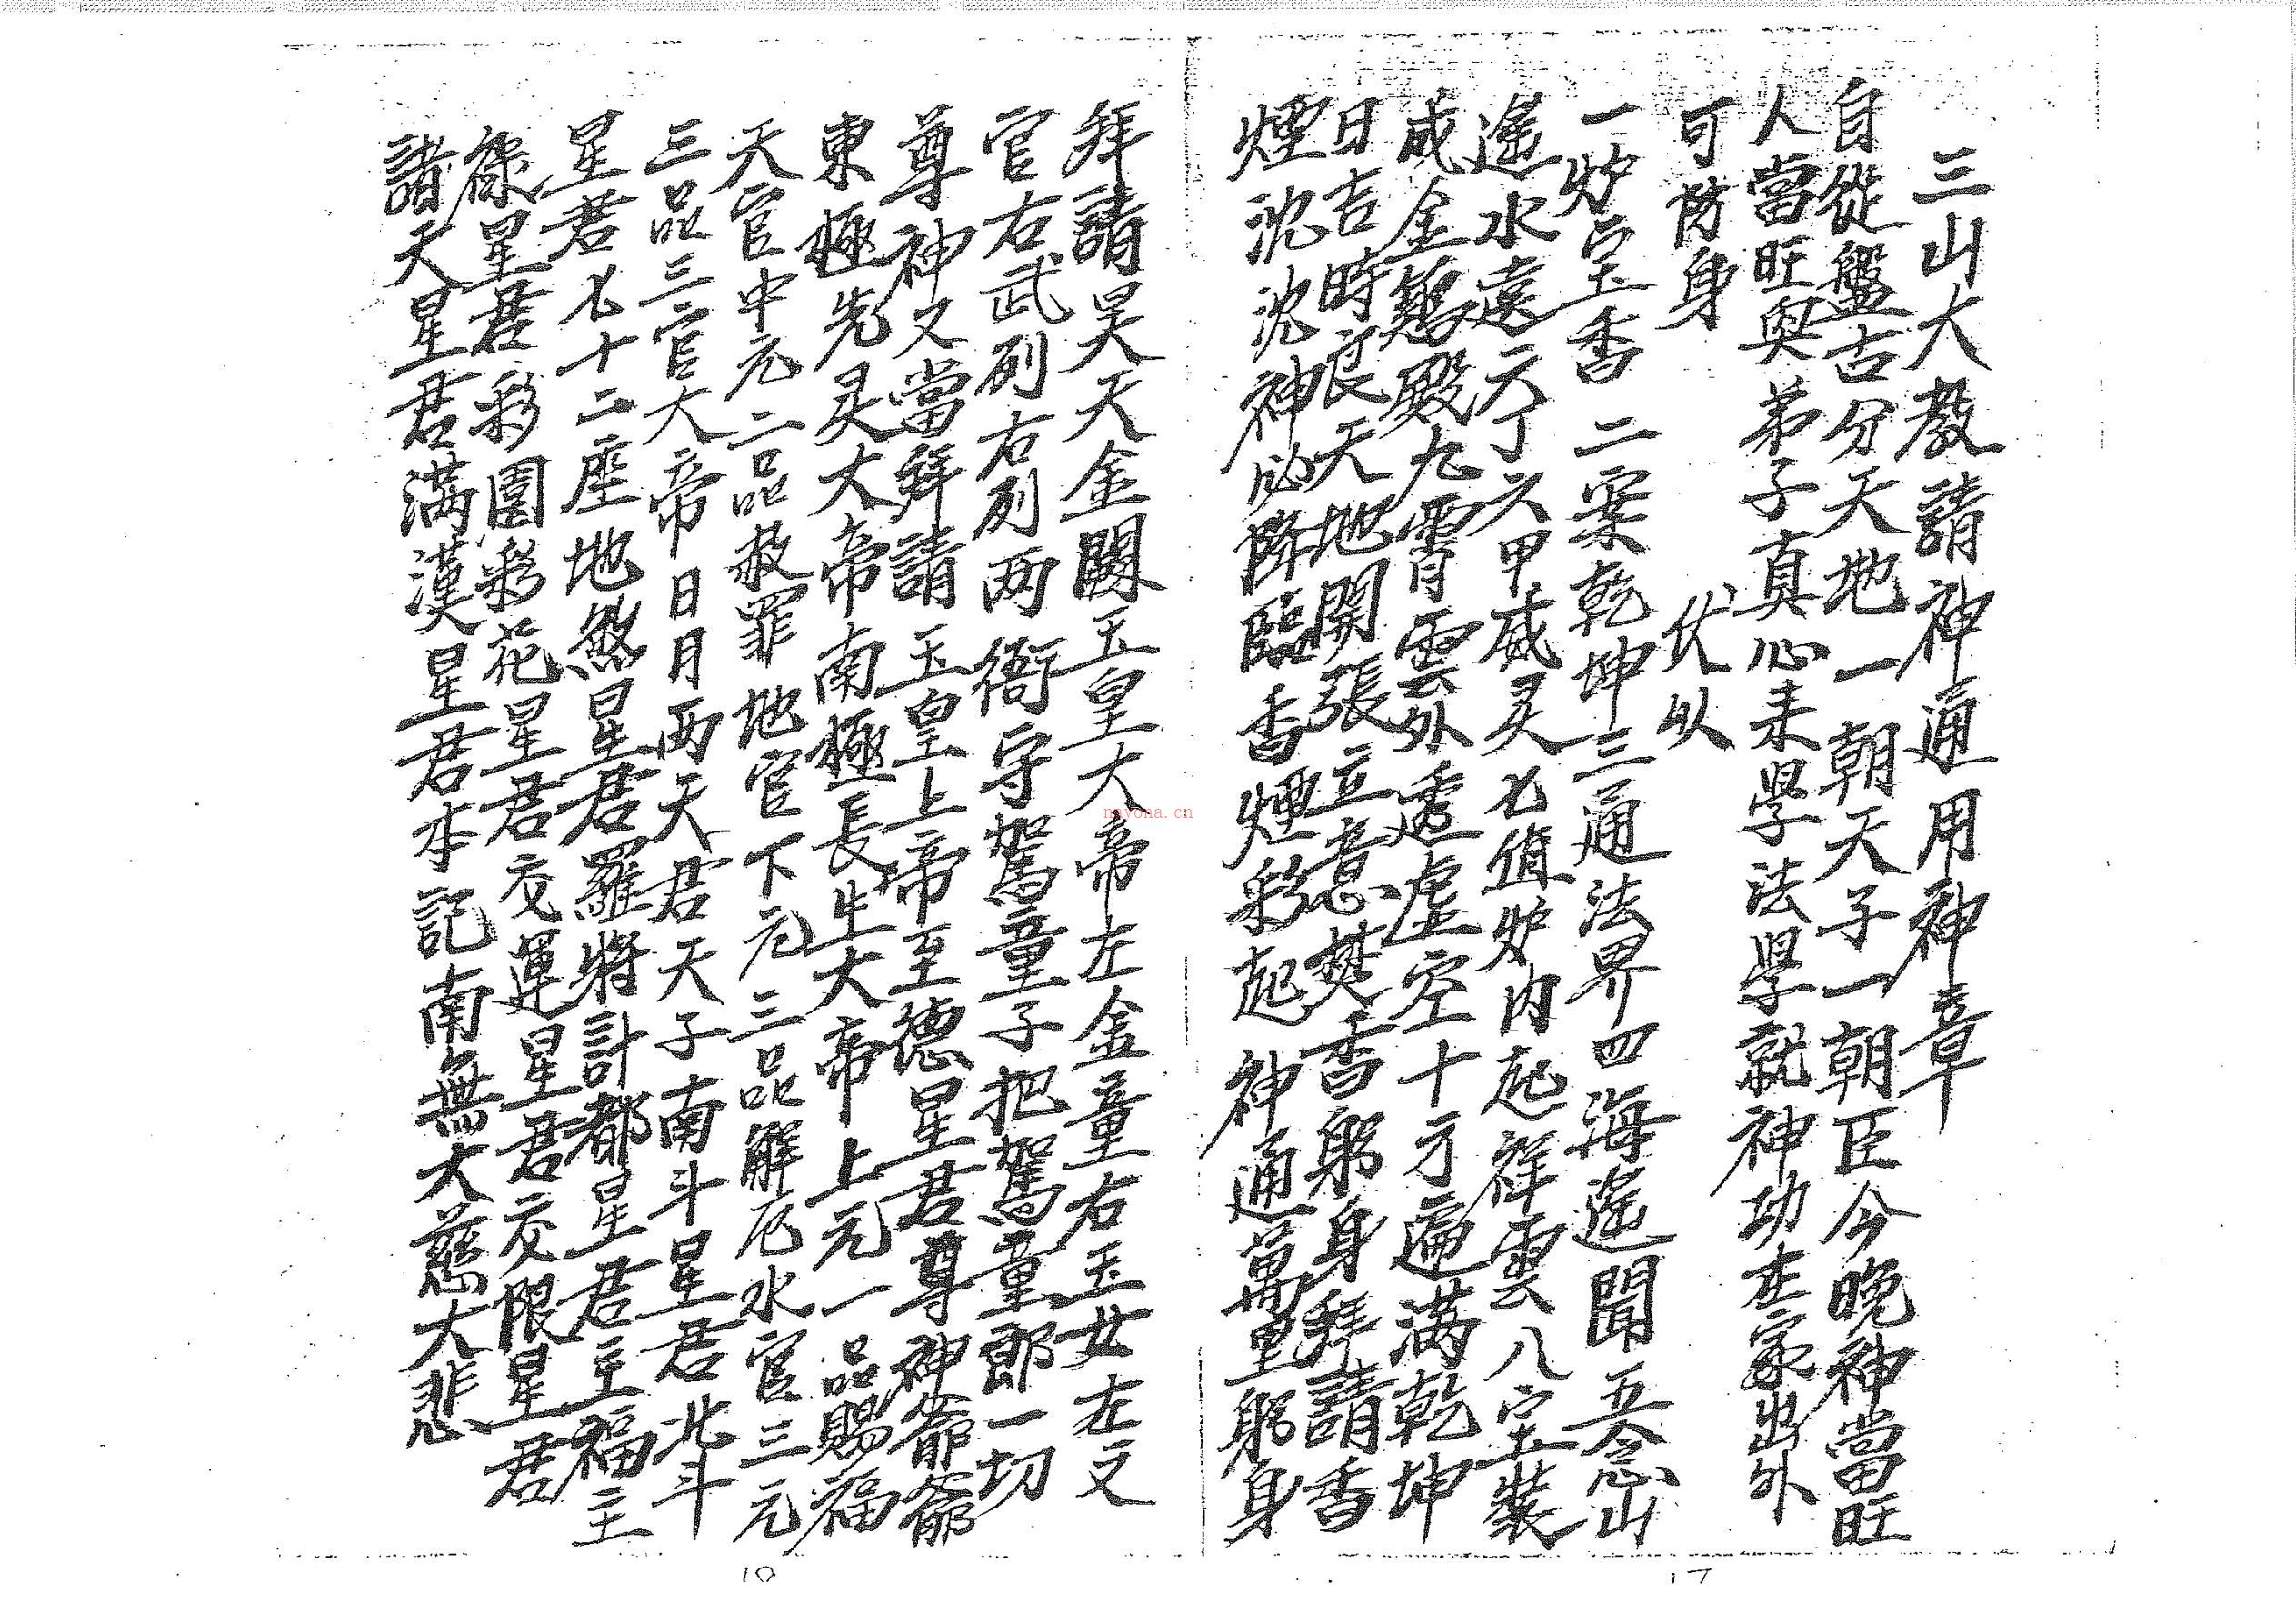 三山大教請神通用神章
自從盤古分天地一朝天子一朝臣今晚神當旺
人當旺與弟子真心来學法學就神功在家出外
可防身 伏以
一炉宝香二案乾坤三通法界四海遙聞五念山
遙水遠六丁六甲威灵七值炉内起祥雲八宝裝
成金鷄殿九霄雲外透虛空十方遍满乾坤
日吉時良天地開張立意焚香躬身拜請香
煙沈沈神必降臨香煙彩起神通萬里躬身
拜請昊天金闕玉皇大帝左金童右玉女左文
官右武列右列两衙守駕童子把駕童郎一切
尊神又當拜請玉皇上帝至德星君尊神爺爺
東極先灵大帝南極長生大帝上元一品賜福
天官中元二品赦罪地官下元三品解厄水官三元
三品三官大帝日月两天君天子南斗星君北斗
星君七十二座地煞星君羅將計都星君主福主
祿星君彩園彩花星君交運星君交限星君
諸天星君满漢星君李記南無大慈大悲
nayona.cn
10
17